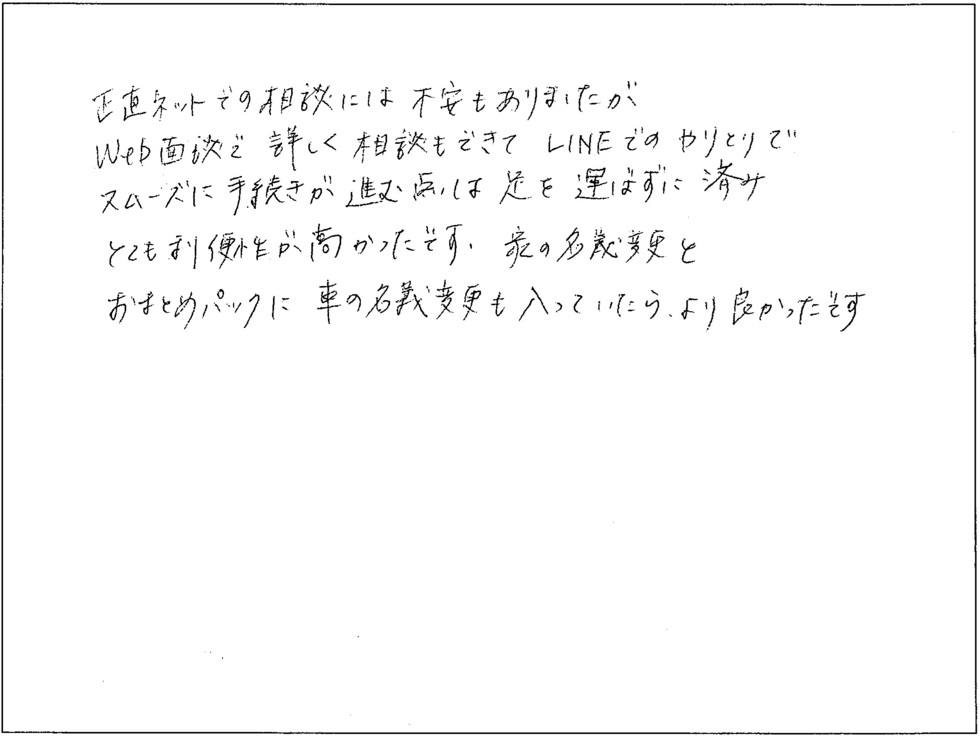 正直ネットでの相談には不安もありましたが
Web面談で詳しく相談もできてLINEでのやりとりで
スムーズに手続きが進む点は足を運ばずに済み
とても利便性が高かったです。家の名義変更と
おまとめパックに車の名義変更も入っていたら、より良かったです